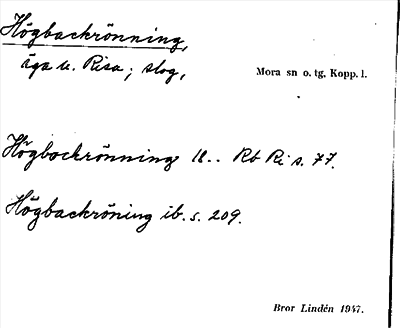 Högbackrönning,
äga u. Risa; slog,
Mora sn o. tg, Kopp. l.
Högbockrönning 18.. Rb Ri s. 77.
Högbackröning ib. s. 209.
Bror Lindén 1947.